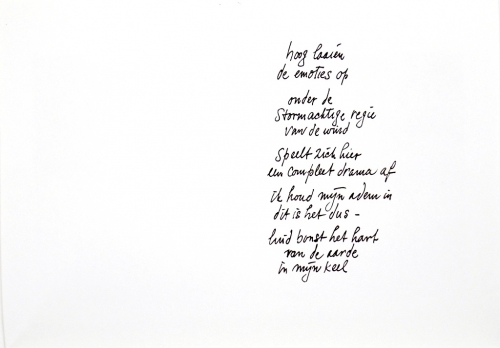 hoog laaien
de emoties op
onder de
stormachtige regie
van de wind
speelt zich hier
een compleet drama af
ik houd mijn adem in
dit is het dus –
luid bonst het hart
van de aarde
in mijn keel